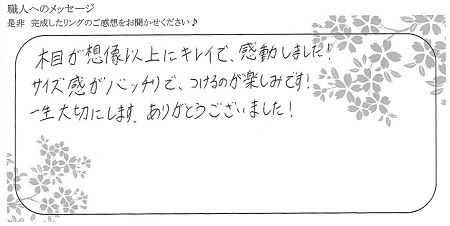 職人へのメッセージ
是非 完成したリングのご感想をお聞かせください♪
木目が想像以上にキレイで、感動しました！
サイズ感がバッチリで、つけるのが楽しみです！
一生大切にします。ありがとうございました！